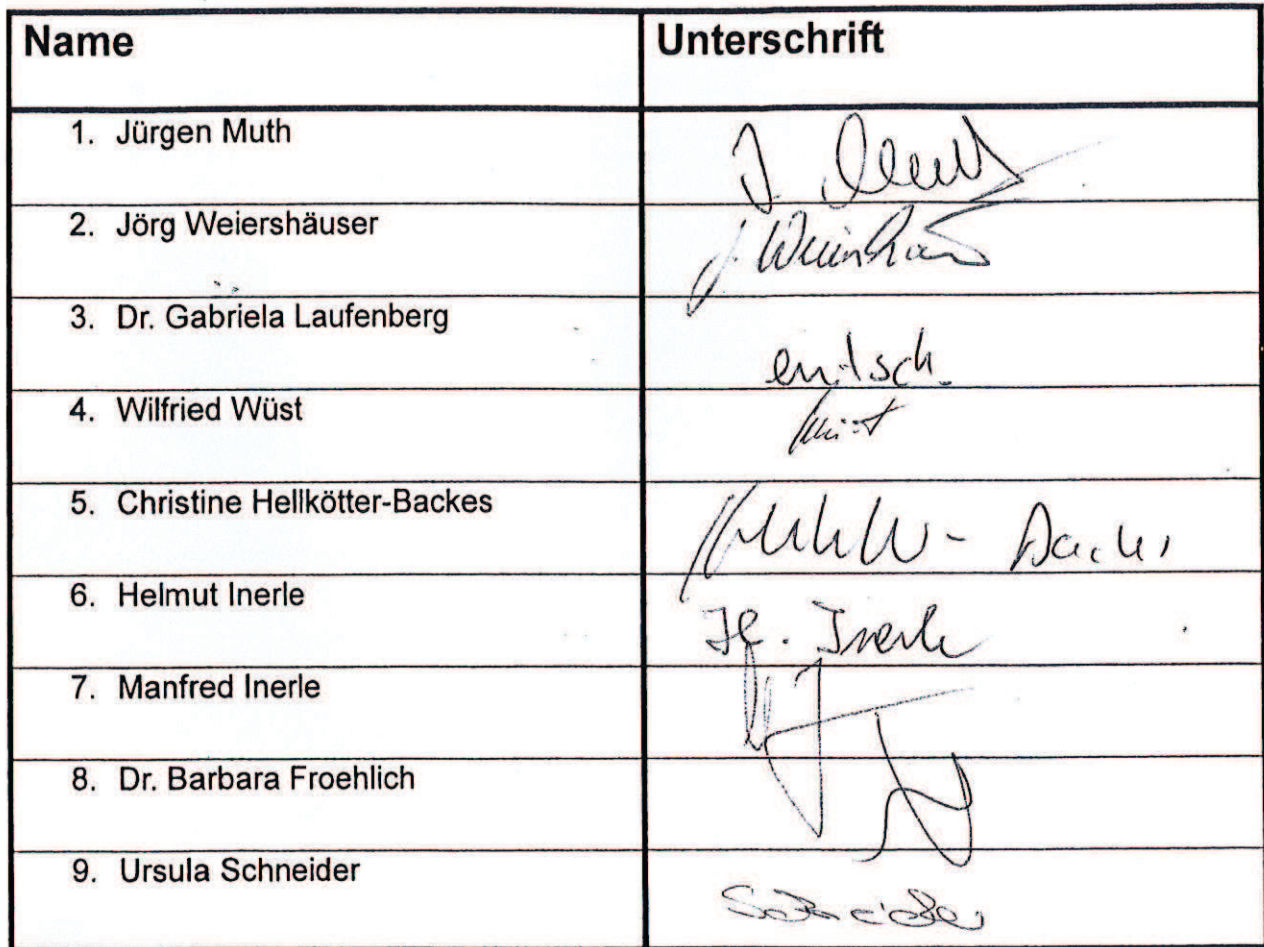 Name Unterschrift
1. Jürgen Muth J. Muth
2. Jörg Weiershäuser J.
3. Dr. Gabriela Laufenberg entsch.
4. Wilfried Wüst Wüst
5. Christine Hellkötter-Backes
6. Helmut Inerle H. Inerle
7. Manfred Inerle
8. Dr. Barbara Froehlich
9. Ursula Schneider Schneider